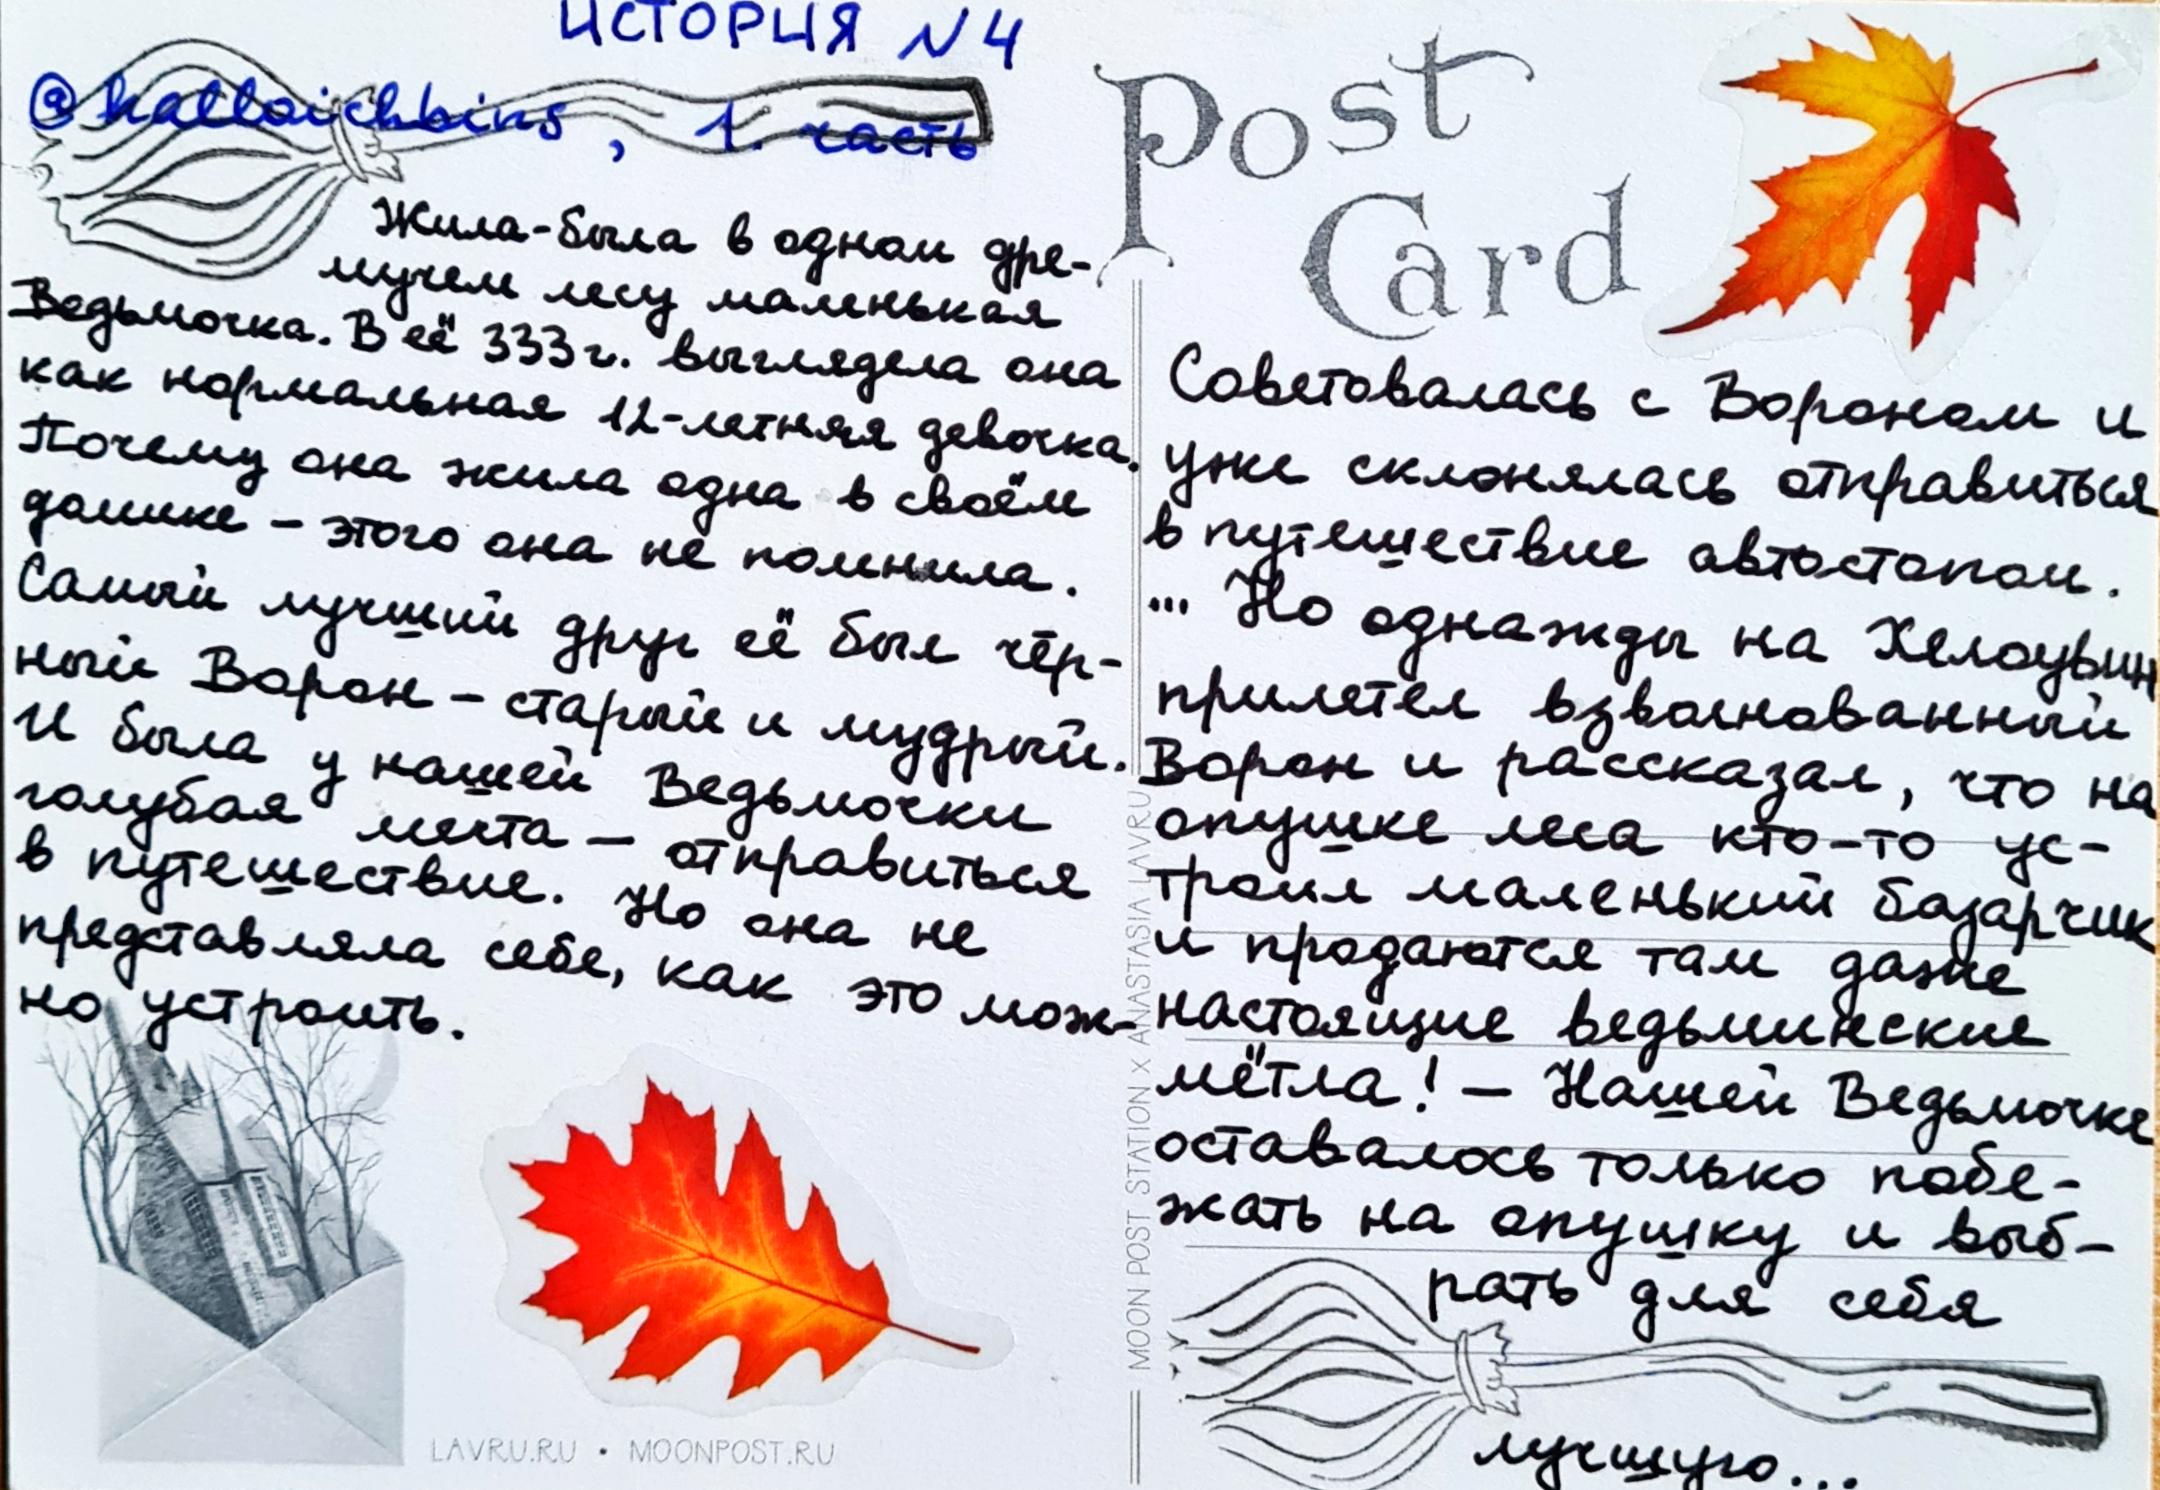 ИСТОРИЯ N 4
@halloichbins, 1. часть
Жила-была в одном дре-
мучем лесу маленькая
Ведьмочка. В её 333г. выглядела она
как нормальная 12-летняя девочка.
Почему она жила одна в своём
домике – этого она не помнила.
Самый лучший друг её был чёр-
ный Ворон – старый и мудрый.
И была у нашей Ведьмочки
голубая мечта – отправиться
в путешествие. Но она не
представляла себе, как это мож-
но устроить.
LAVRU.RU • MOONPOST.RU
MOON POST STATION X ANASTASIA LAVRU
Post
Card
Советовалась с Вороном и
уже склонялась отправиться
в путешествие автостопом.
... Но однажды на Хелоуьин
прилетел взволнованный
Ворон и рассказал, что на
опушке леса кто-то ус-
троил маленький базарчик
и продаются там даже
настоящие ведьминские
мётла! – Нашей Ведьмочке
оставалось только побе-
жать на опушку и выб-
рать для себя
лучшую...